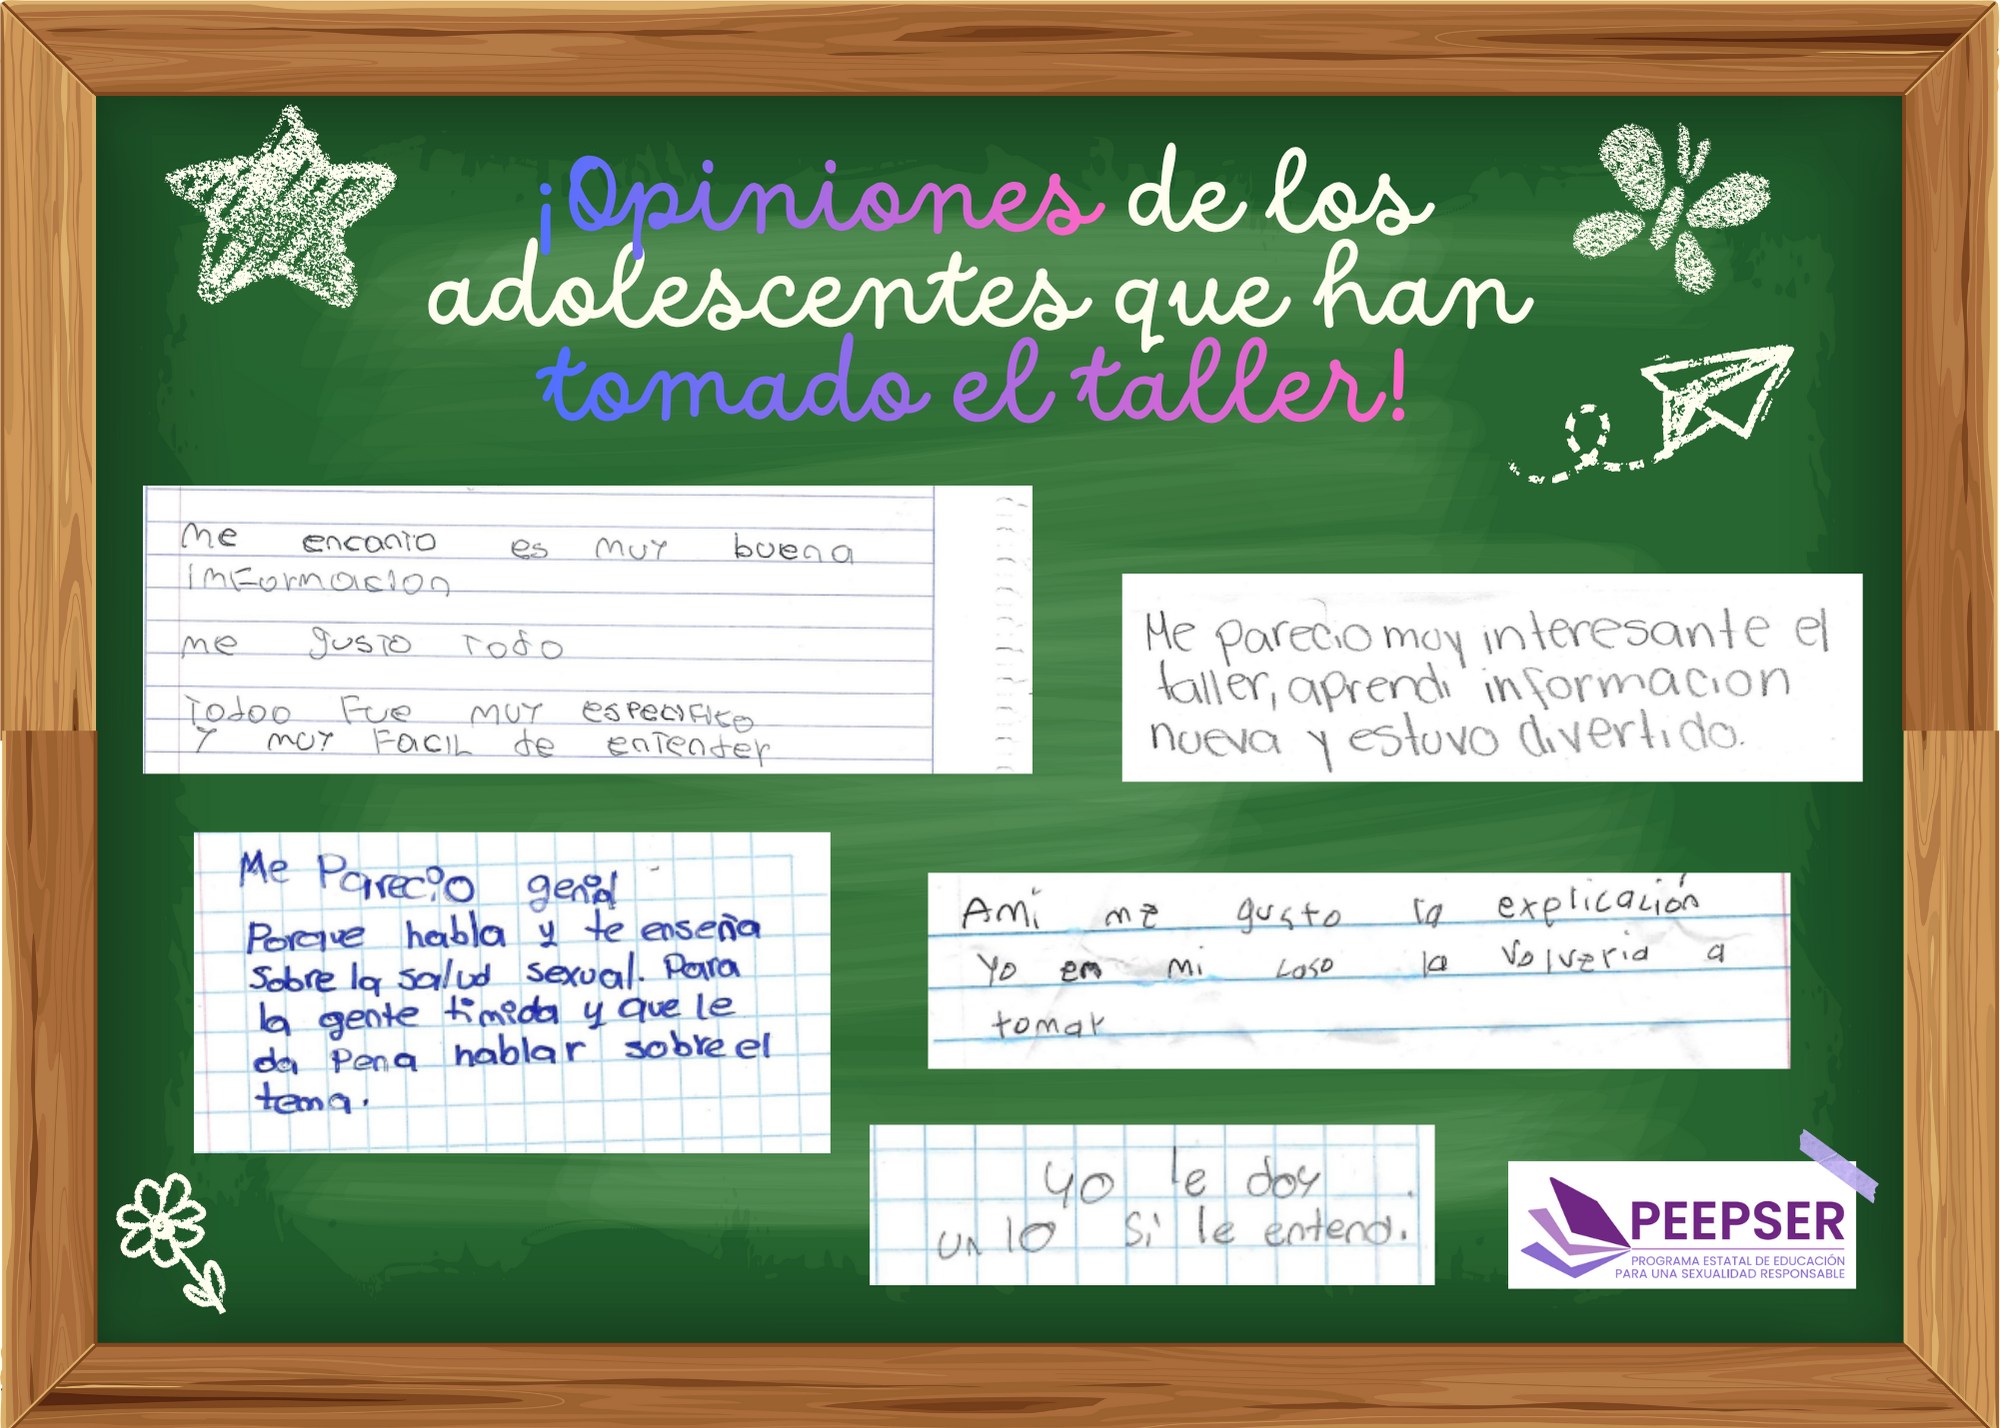 ¡Opiniones de los
adolescentes que han
tomado el taller!
me encanto es muy buena
informacion
me gusto todo
Todoo Fue muy especifico
y muy Facil de entender
Me parecio muy interesante el
taller, aprendi informacion
nueva y estuvo divertido.
Me Parecio genial
Porque habla y te enseña
sobre la salud sexual. Para
la gente timida y que le
da Pena hablar sobre el
tema.
Amí me gusto la explicación
Yo en mi caso la volveria a
tomar
yo le doy
un 10 Si le entend.
PEEPSER
PROGRAMA ESTATAL DE EDUCACIÓN
PARA UNA SEXUALIDAD RESPONSABLE